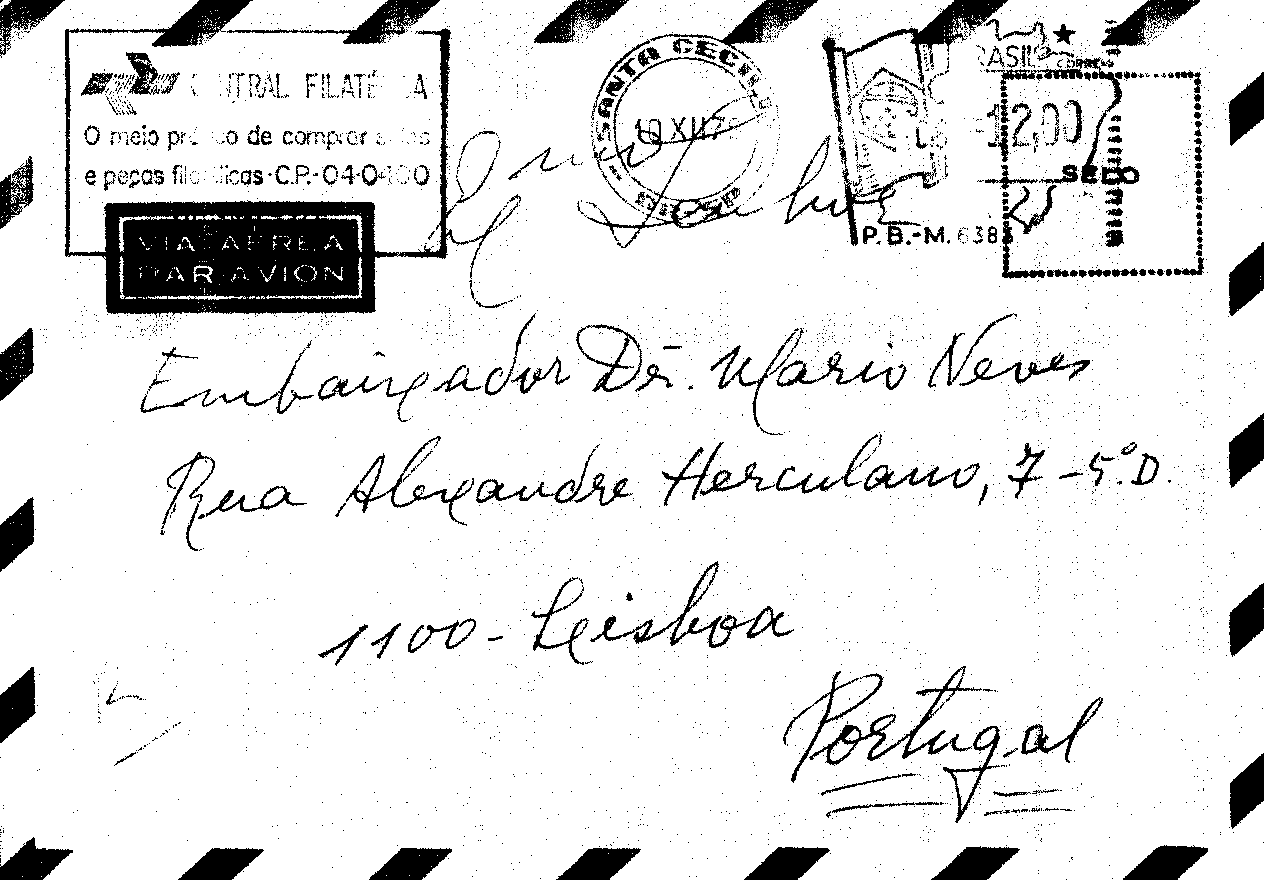 CENTRAL FILATÉLICA
O meio prático de comprar selos
e peças filatélicas - C.P.-04-0-100
VIA AÉREA
PAR AVION
SANTA CECILIA
10 XII 7
BRASIL CORREIO
12,00
SELO
P.B.-M. 6383
Embaixador Dr. Mario Neves
Rua Alexandre Herculano, 7 - 5º. D.
1100 - Lisboa
Portugal